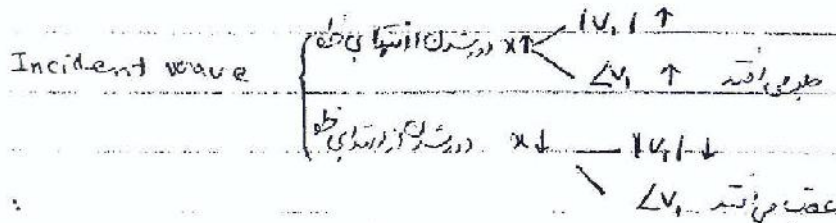 |V₁| ↑
Incident wave { دور شدن از انتهای خط x↑
∠V₁ ↑ جلو می افتد
دور شدن از ابتدای خط x↓ — |V₁| ↓
∠V₁ عقب می افتد